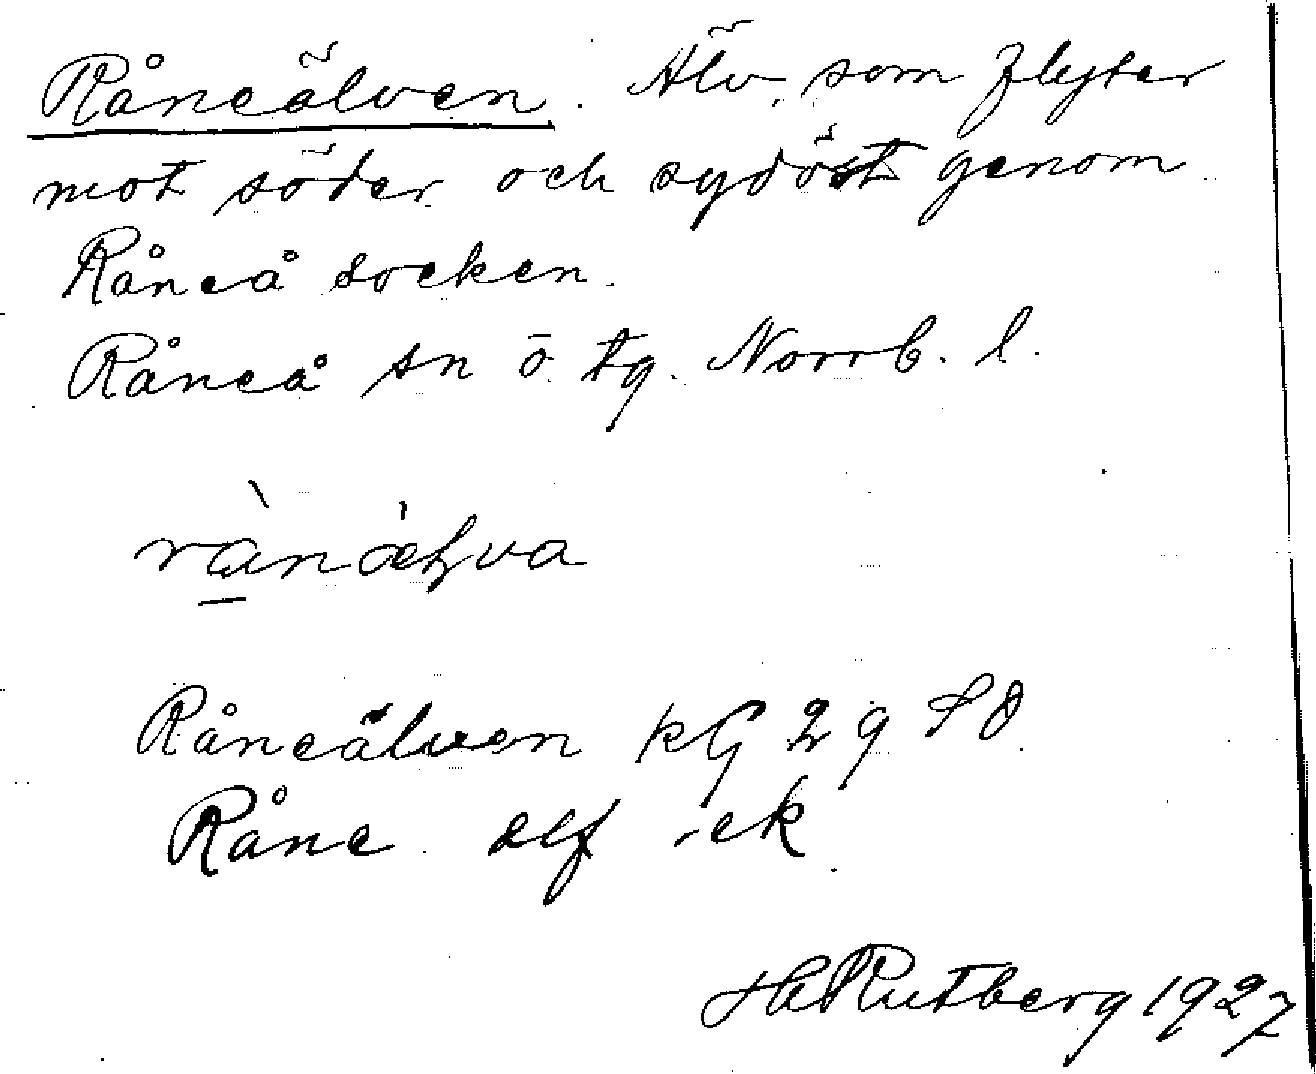 Råneälven. Älv, som flyter
mot söder och sydöst genom
Råneå socken.
Råneå sn ö. tg. Norrb. l.
Råneälven kG 2 g SO
Råne elf -ek
HRutberg 1927